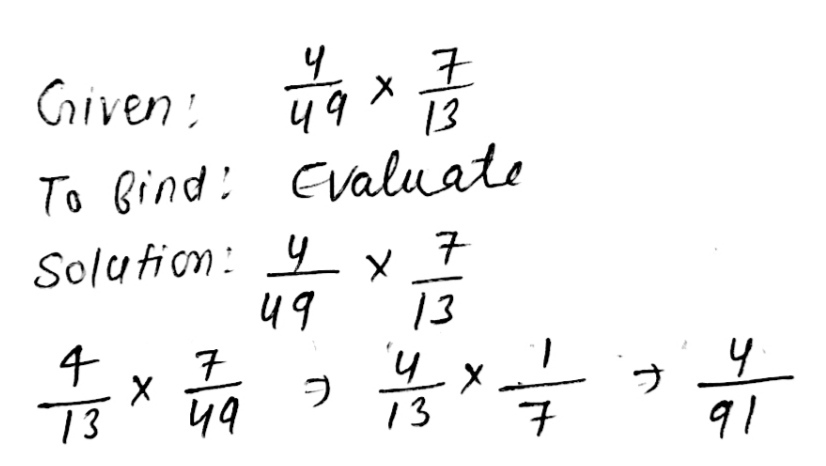 Given: 4/49 × 7/13
To find: Evaluate
Solution: 4/49 × 7/13
4/13 × 7/49 ⇒ 4/13 × 1/7 ⇒ 4/91